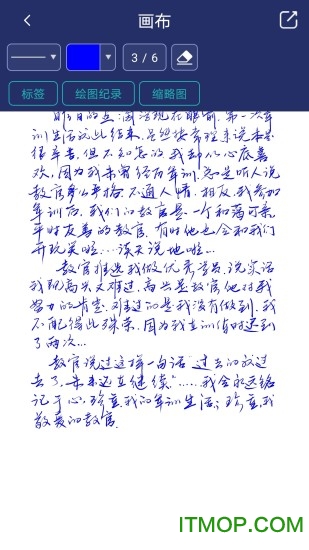 画布
3 / 6
标签
绘图纪录
缩略图
训生活就此结束。虽然按常理来说本是
很辛苦,但不知怎的我却从心底喜
欢,因为我未曾经历军训,总是听人说
教官多么严格、不通人情。相反,我参加
军训后,我们的教官是一个和蔼可亲、
平好友善的教官,有时他也会和我们
开玩笑啦……谈天说地啦…
教官推选我做优秀学员,说实话
我既高兴又难过,高兴是教官他对我
努力的肯定,难过的是我没有做到,我
不配得此殊荣,因为我在训练时迟到
了两次…
教官说过这样一句话“过去的放过
去了,未来还在继续”……我会永远铭
记于心,珍重我的军训生活;珍重,我
敬爱的教官.
ITMOP.com